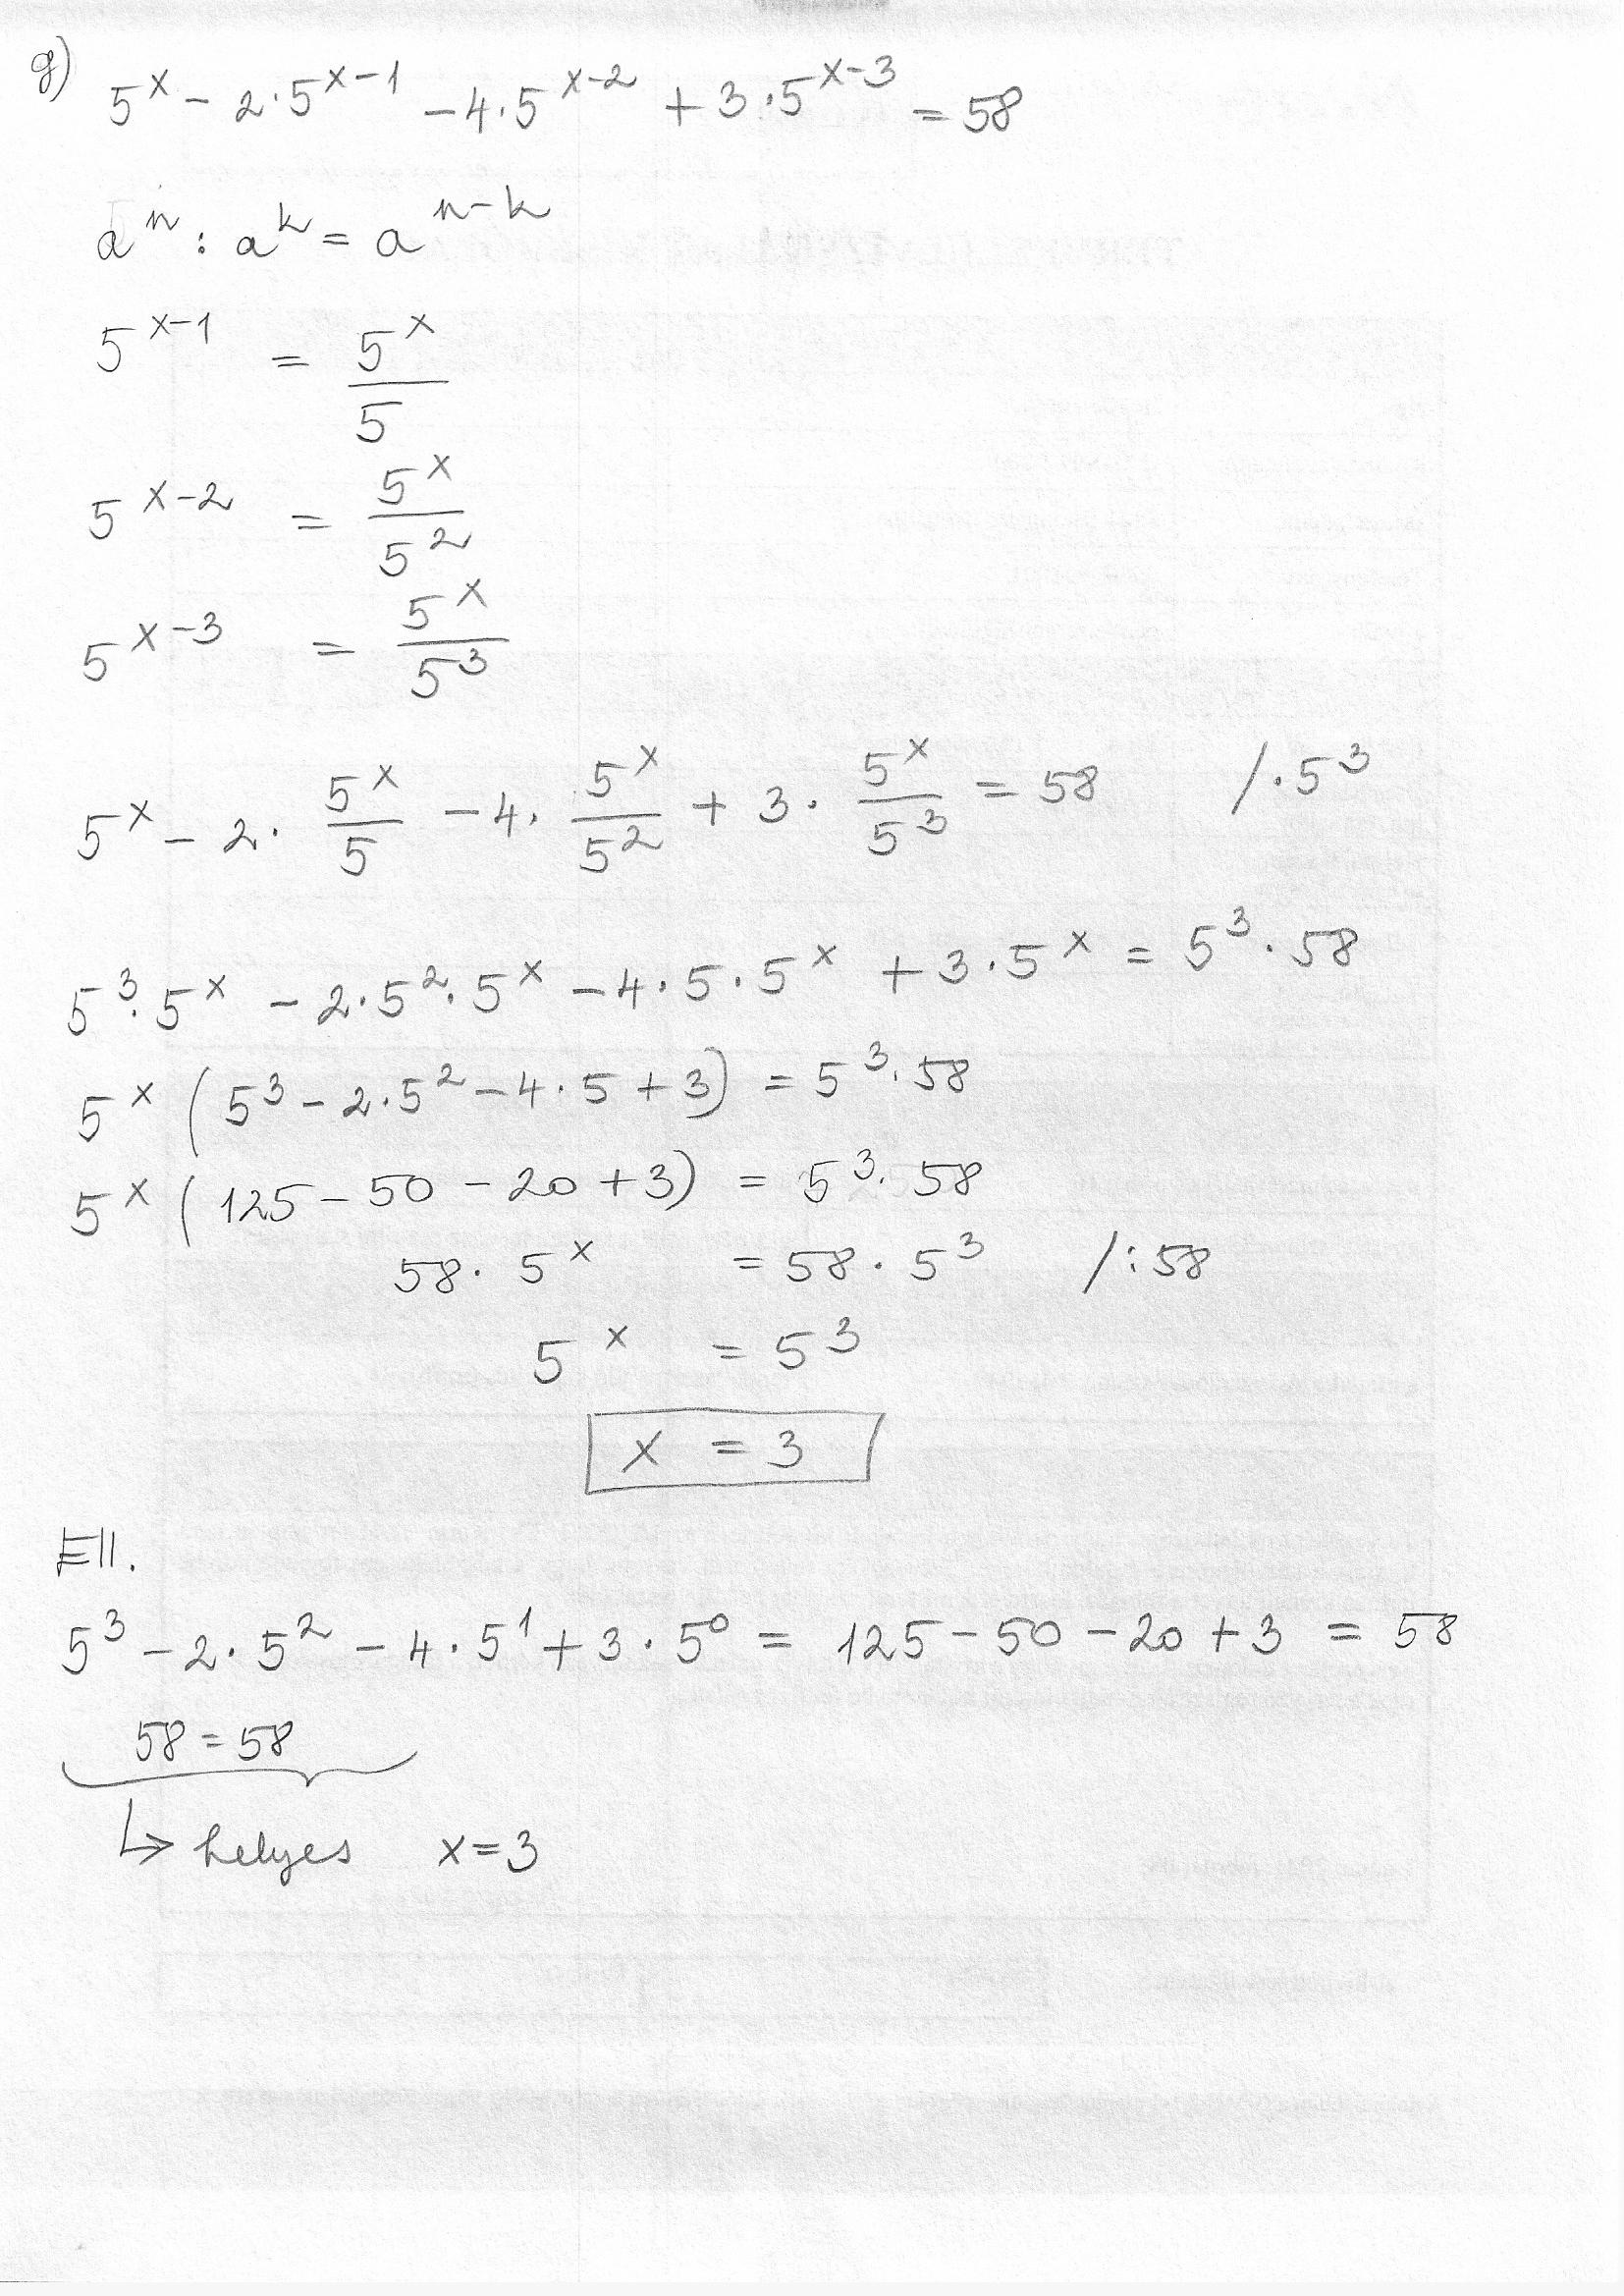 g) 5^x - 2·5^(x-1) - 4·5^(x-2) + 3·5^(x-3) = 58
a^n : a^k = a^(n-k)
5^(x-1) = 5^x/5
5^(x-2) = 5^x/5^2
5^(x-3) = 5^x/5^3
5^x - 2·5^x/5 - 4·5^x/5^2 + 3·5^x/5^3 = 58 /·5^3
5^3·5^x - 2·5^2·5^x - 4·5·5^x + 3·5^x = 5^3·58
5^x (5^3 - 2·5^2 - 4·5 + 3) = 5^3·58
5^x (125 - 50 - 20 + 3) = 5^3·58
58·5^x = 58·5^3 /:58
5^x = 5^3
x = 3
Ell.
5^3 - 2·5^2 - 4·5^1 + 3·5^0 = 125 - 50 - 20 + 3 = 58
58 = 58
↳ helyes x = 3